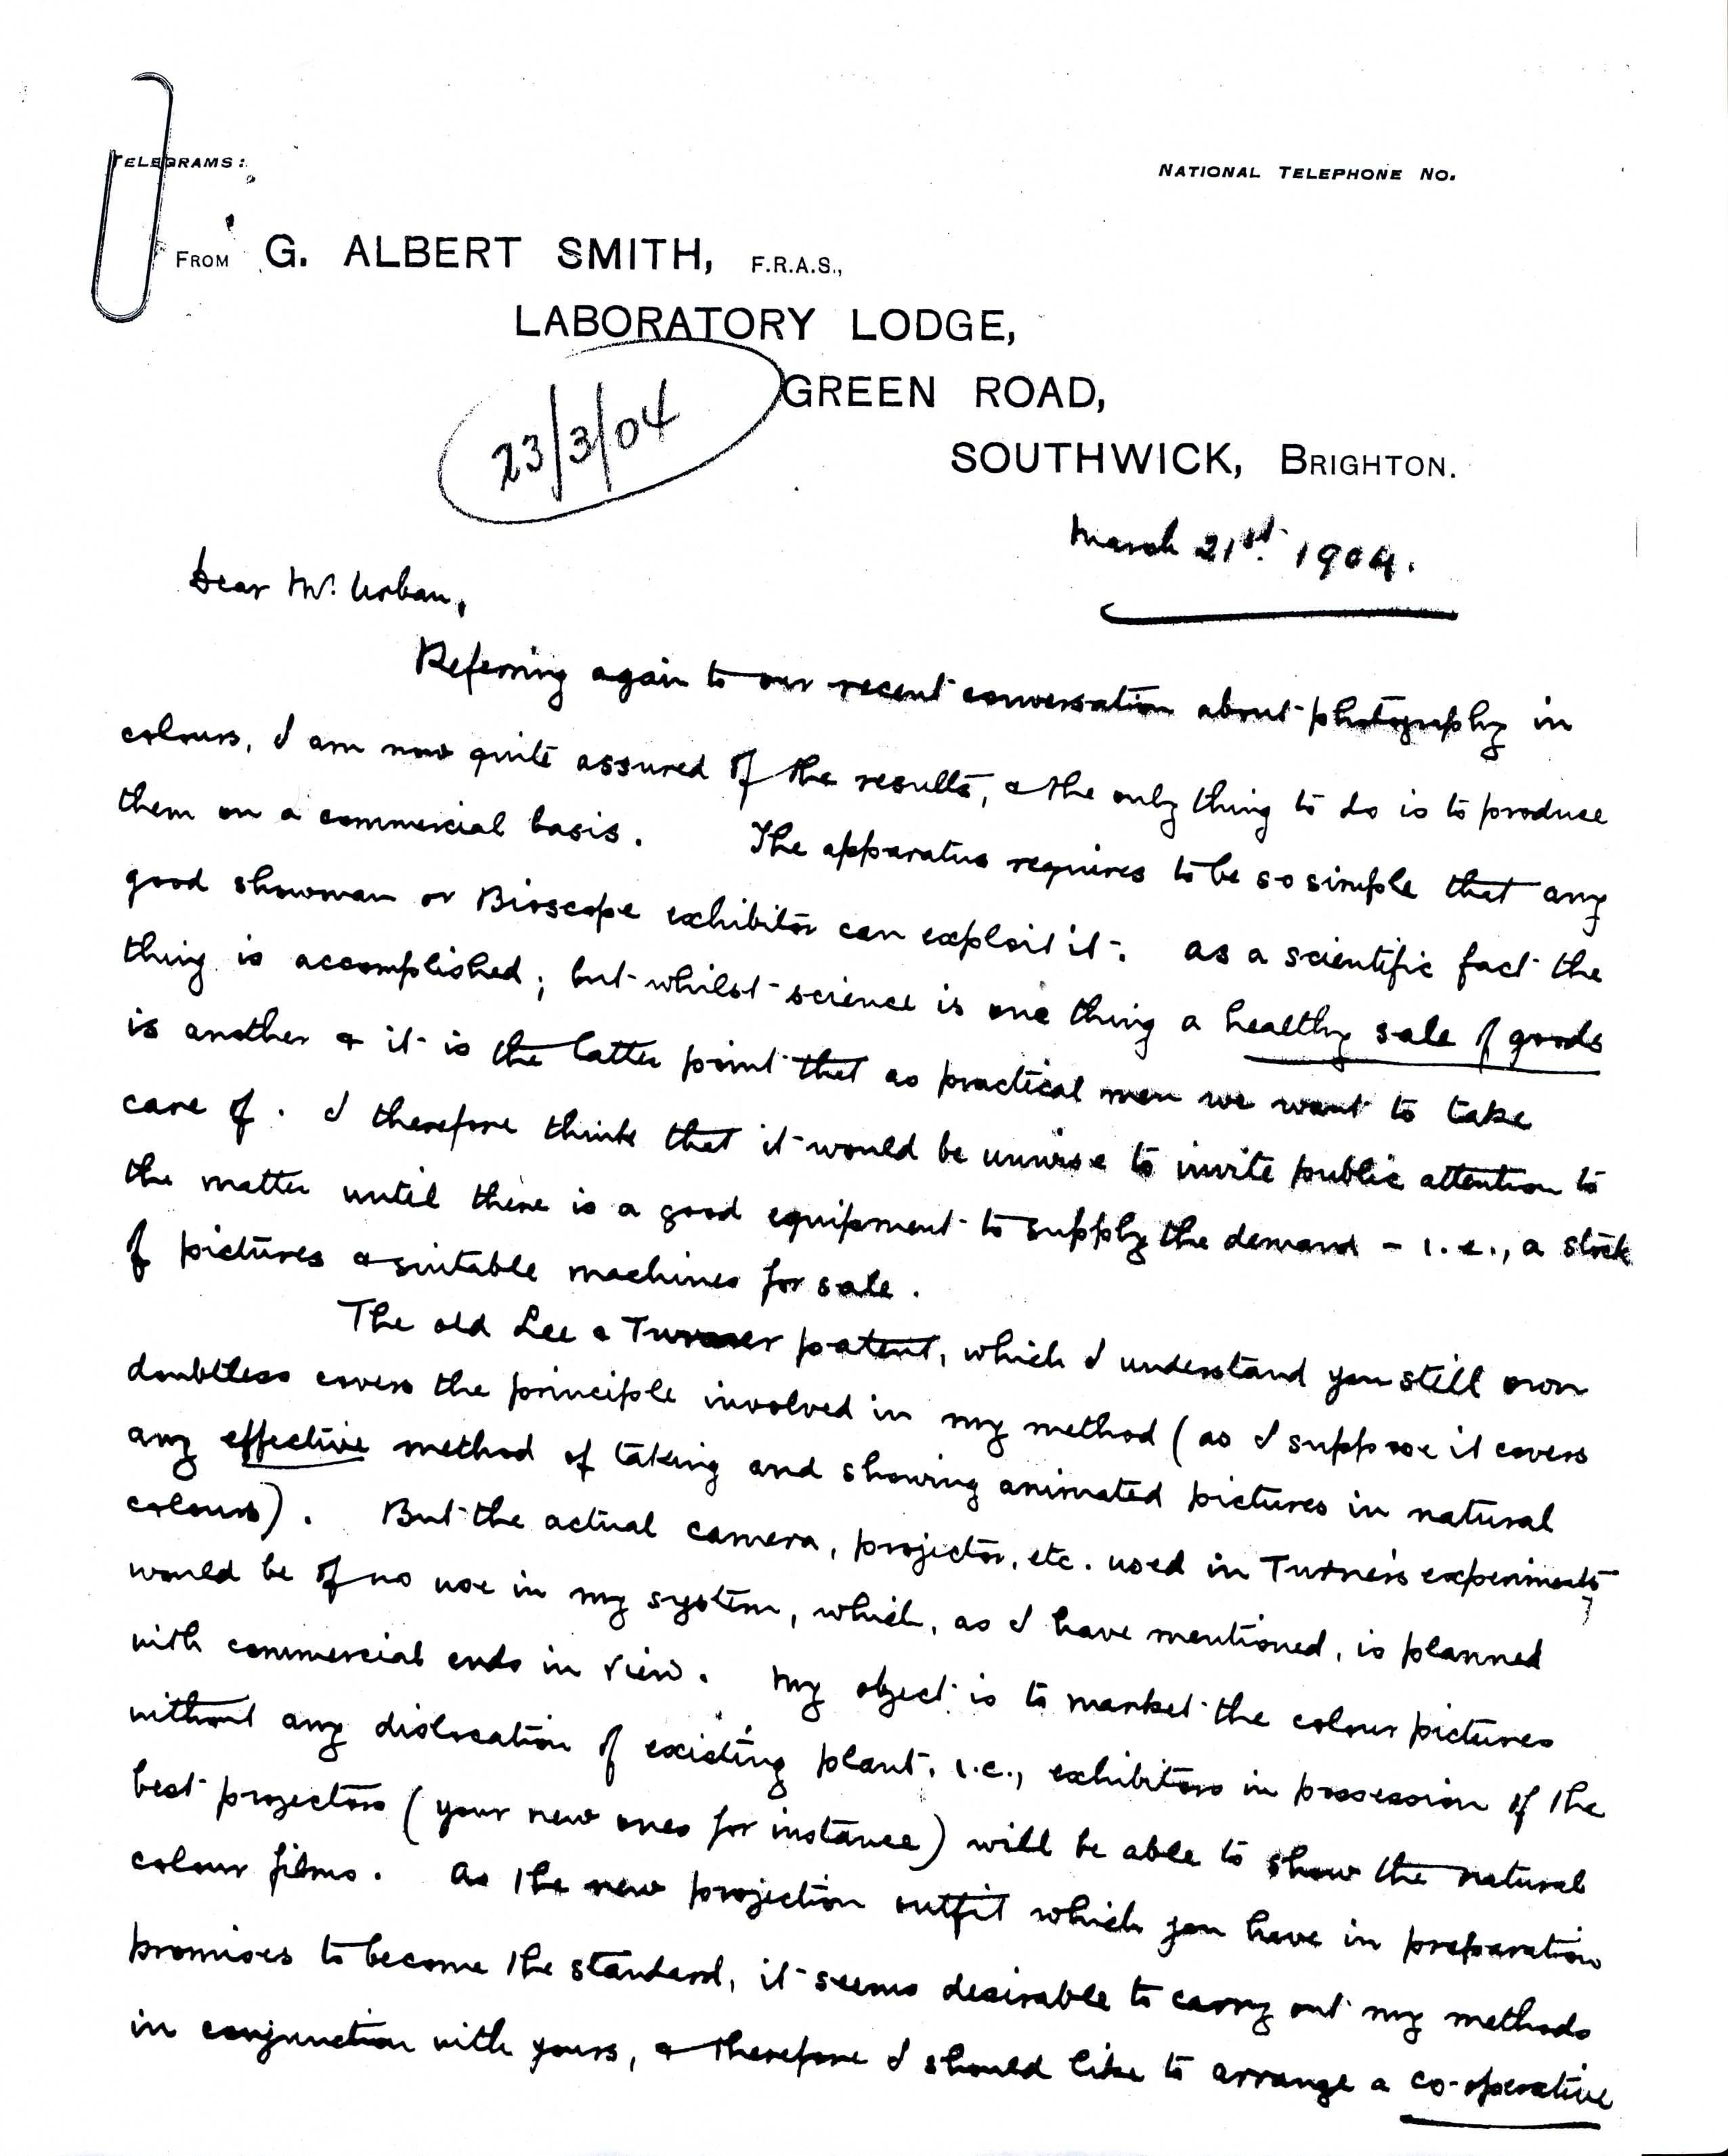 TELEGRAMS:
NATIONAL TELEPHONE NO.
FROM G. ALBERT SMITH, F.R.A.S.,
LABORATORY LODGE,
GREEN ROAD,
SOUTHWICK, BRIGHTON.
23/3/04
March 21st. 1904.
Dear Mr. Urban,
Referring again to our recent conversation about photography in
colours, I am now quite assured of the results, & the only thing to do is to produce
them on a commercial basis. The apparatus requires to be so simple that any
good showman or Bioscope exhibitor can exploit it. As a scientific fact the
thing is accomplished; but whilst science is one thing a healthy sale of goods
is another & it is the latter point that as practical men we want to take
care of. I therefore think that it would be unwise to invite public attention to
the matter until there is a good equipment to supply the demand - i.e., a stock
of pictures & suitable machines for sale.
The old Lee & Turner patent, which I understand you still own
doubtless covers the principle involved in my method (as I suppose it covers
any effective method of taking and showing animated pictures in natural
colours). But the actual camera, projector, etc. used in Turner's experiments
would be of no use in my system, which, as I have mentioned, is planned
with commercial ends in view. My object is to market the colour pictures
without any dislocation of existing plant, i.e., exhibitors in possession of the
best projectors (your new ones for instance) will be able to show the natural
colour films. As the new projection outfit which you have in preparation
promises to become the standard, it seems desirable to carry out my methods
in conjunction with yours, & therefore I should like to arrange a co-operative